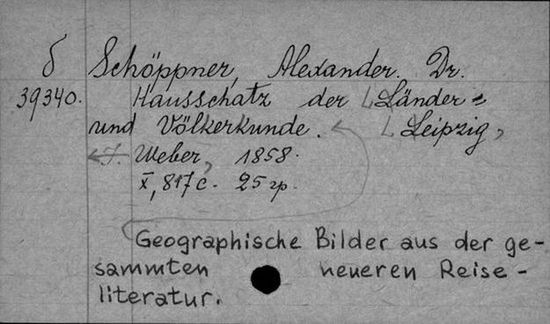 δ Schöppner, Alexander. Dr.
39340. Hausschatz der Länder=
und Völkerkunde. Leipzig,
J. Weber, 1858.
X, 817 с. 25 гр.
Geographische Bilder aus der ge-
sammten neueren Reise-
literatur.